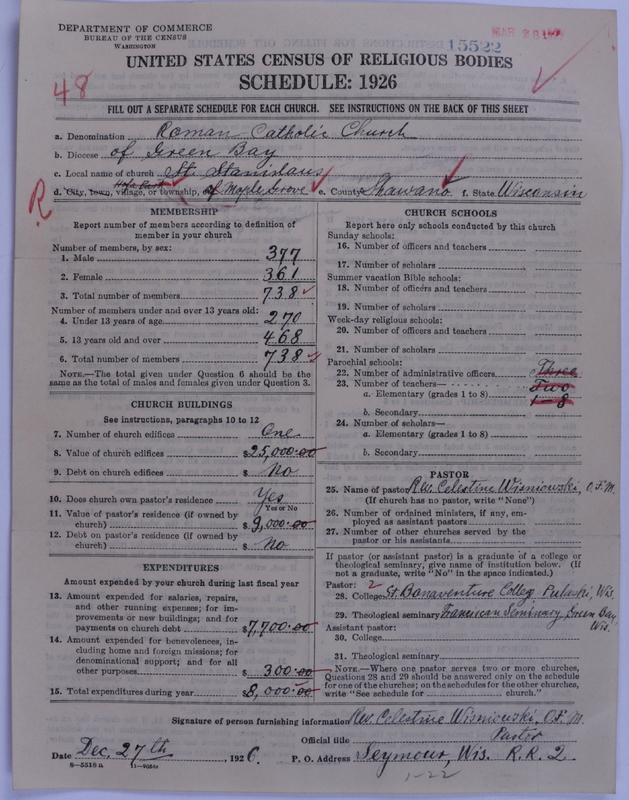 DEPARTMENT OF COMMERCE
BUREAU OF THE CENSUS
WASHINGTON
15522
UNITED STATES CENSUS OF RELIGIOUS BODIES
SCHEDULE: 1926
48
FILL OUT A SEPARATE SCHEDULE FOR EACH CHURCH. SEE INSTRUCTIONS ON THE BACK OF THIS SHEET
a. Denomination Roman Catholic Church
b. Diocese of Green Bay
c. Local name of church St. Stanislaus
Hofa Park
d. City, town, village, or township, of Maple Grove e. County Shawano f. State Wisconsin
R
MEMBERSHIP
Report number of members according to definition of
member in your church
Number of members, by sex:
1. Male 377
2. Female 361
3. Total number of members 738
Number of members under and over 13 years old:
4. Under 13 years of age 270
5. 13 years old and over 468
6. Total number of members 738
NOTE.—The total given under Question 6 should be the
same as the total of males and females given under Question 3.
CHURCH BUILDINGS
See instructions, paragraphs 10 to 12
7. Number of church edifices One
8. Value of church edifices $25,000.00
9. Debt on church edifices $ No
10. Does church own pastor's residence Yes
Yes or No
11. Value of pastor's residence (if owned by
church) $ 9,000.00
12. Debt on pastor's residence (if owned by
church) $ No
EXPENDITURES
Amount expended by your church during last fiscal year
13. Amount expended for salaries, repairs,
and other running expenses; for im-
provements or new buildings; and for
payments on church debt $7,700.00
14. Amount expended for benevolences, in-
cluding home and foreign missions; for
denominational support; and for all
other purposes $ 300.00
15. Total expenditures during year $8,000.00
CHURCH SCHOOLS
Report here only schools conducted by this church
Sunday schools:
16. Number of officers and teachers
17. Number of scholars
Summer vacation Bible schools:
18. Number of officers and teachers
19. Number of scholars
Week-day religious schools:
20. Number of officers and teachers
21. Number of scholars
Parochial schools:
22. Number of administrative officers Three
23. Number of teachers— Two
a. Elementary (grades 1 to 8) 1-8
b. Secondary
24. Number of scholars—
a. Elementary (grades 1 to 8)
b. Secondary
PASTOR
25. Name of pastor Rev. Celestine Wisniowski, O.F.M.
(If church has no pastor, write "None")
26. Number of ordained ministers, if any, em-
ployed as assistant pastors
27. Number of other churches served by the
pastor or his assistants
If pastor (or assistant pastor) is a graduate of a college or
theological seminary, give name of institution below. (If
not a graduate, write "No" in the space indicated.)
Pastor: 2
28. College St. Bonaventure Colleg Pulaski, Wis.
29. Theological seminary Franciscan Seminary Green Bay, Wis.
Assistant pastor:
30. College
31. Theological seminary
NOTE.—Where one pastor serves two or more churches,
Questions 28 and 29 should be answered only on the schedule
for one of the churches; on the schedules for the other churches,
write "See schedule for church."
Signature of person furnishing information Rev. Celestine Wisniowski, O.F.M.
Official title Pastor
Date Dec. 27th, 1926. P. O. Address Seymour, Wis. R.R. 2.
8—5518 a
1-22